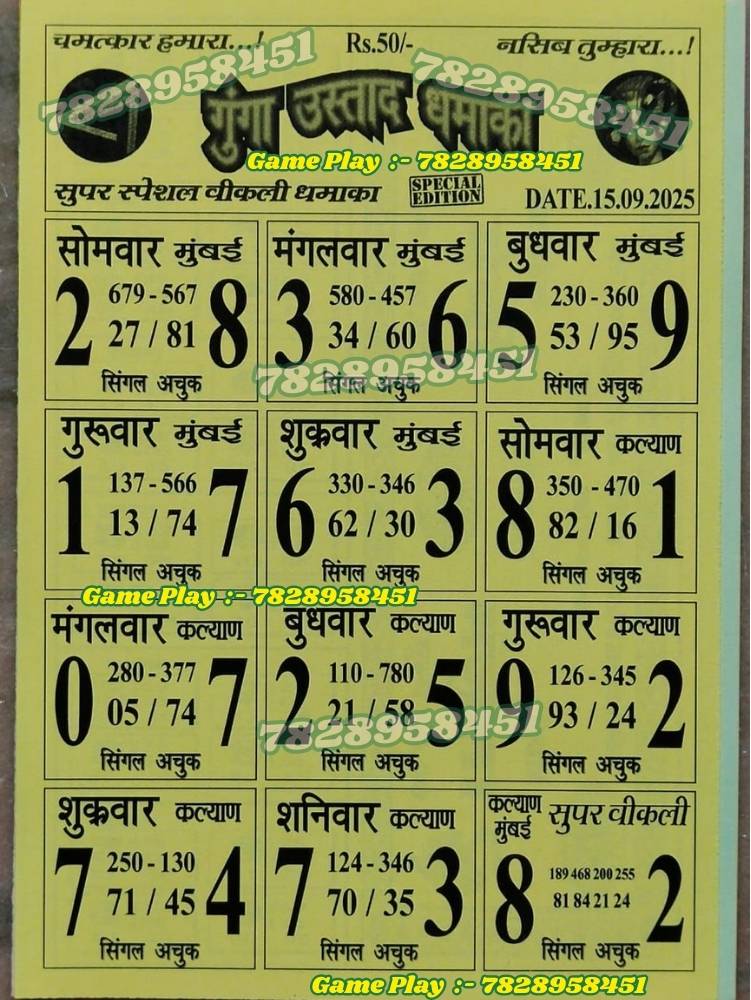 चमत्कार हमारा...! Rs.50/- नसिब तुम्हारा...!
7828958451 7828958451
गुंगा उस्ताद धमाका
Game Play :- 7828958451
सुपर स्पेशल वीकली धमाका SPECIAL EDITION DATE.15.09.2025
सोमवार मुंबई
679-567
2 27 / 81 8
सिंगल अचुक
मंगलवार मुंबई
580-457
3 34 / 60 6
सिंगल अचुक
7828958451
बुधवार मुंबई
230-360
5 53 / 95 9
सिंगल अचुक
गुरूवार मुंबई
137-566
1 13 / 74 7
सिंगल अचुक
शुक्रवार मुंबई
330-346
6 62 / 30 3
सिंगल अचुक
सोमवार कल्याण
350-470
8 82 / 16 1
सिंगल अचुक
Game Play :- 7828958451
मंगलवार कल्याण
280-377
0 05 / 74 7
सिंगल अचुक
बुधवार कल्याण
110-780
2 21 / 58 5
7828958451
सिंगल अचुक
गुरूवार कल्याण
126-345
9 93 / 24 2
सिंगल अचुक
शुक्रवार कल्याण
250-130
7 71 / 45 4
सिंगल अचुक
शनिवार कल्याण
124-346
7 70 / 35 3
सिंगल अचुक
कल्याण मुंबई सुपर वीकली
189 468 200 255
8 81 84 21 24 2
सिंगल अचुक
Game Play :- 7828958451